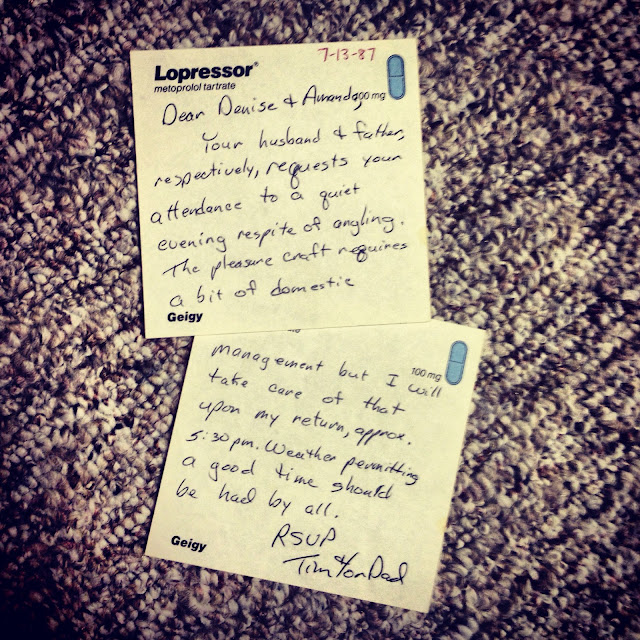 7-13-87
Lopressor®
metoprolol tartrate
100 mg
Dear Denise & Amanda,
Your husband & father,
respectively, requests your
attendance to a quiet
evening respite of angling.
The pleasure craft requires
a bit of domestic
Geigy
100 mg
management but I will
take care of that
upon my return, approx.
5:30 pm. Weather permitting
a good time should
be had by all.
RSVP
Tim &/or Dad
Geigy